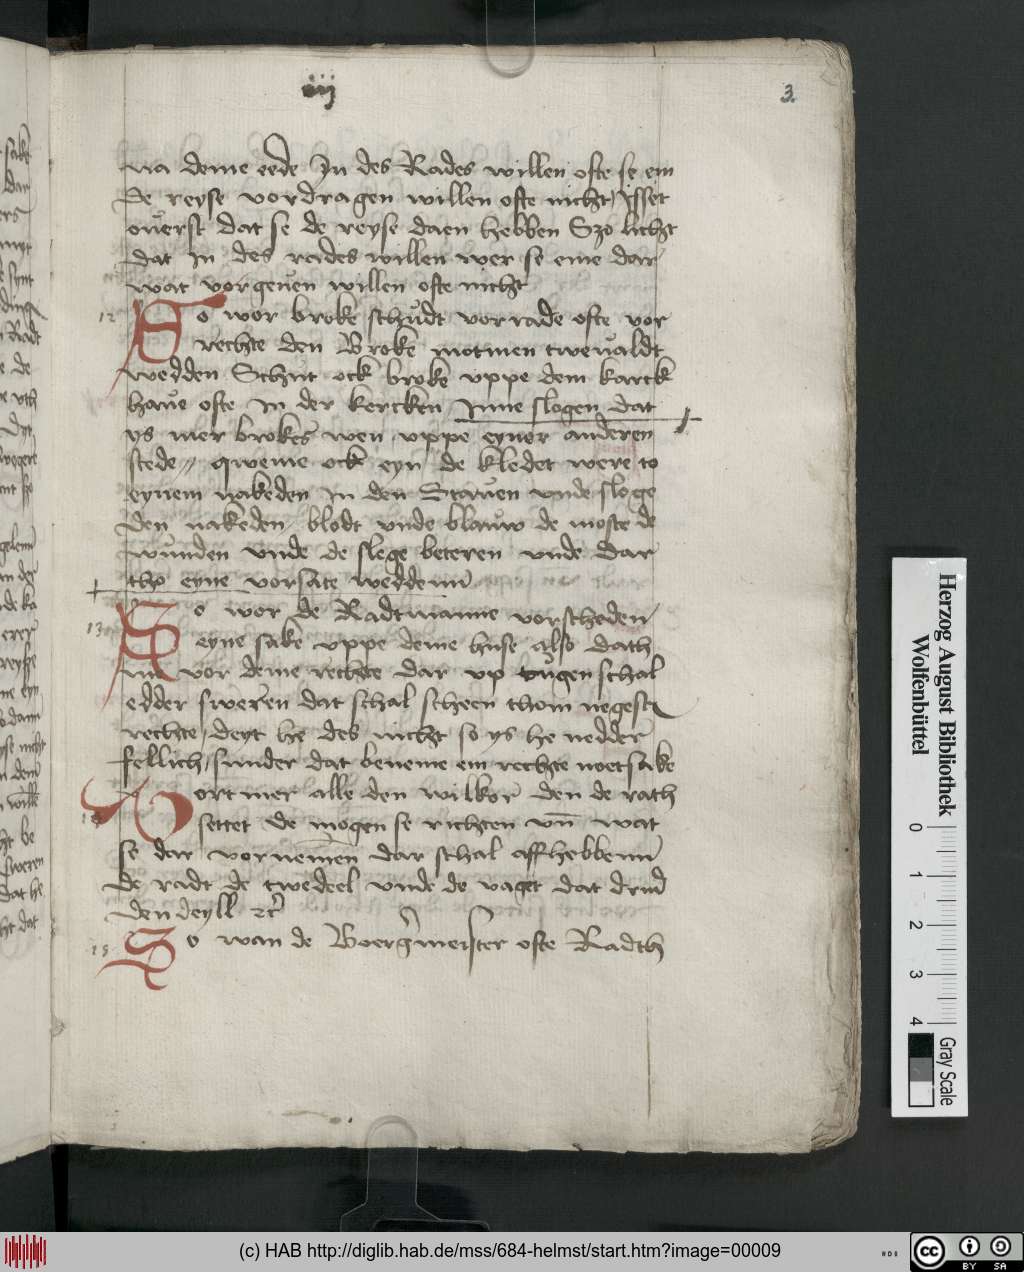 iij
3.
na deme eede In des Rades willen ofte se em
de reyse vordragen willen ofte nicht / Isset
ouerst dat se de reyse daen hebben Szo licht
dat in des rades willen wer se eme dar
wat vorgeuen willen ofte nicht
12 So wor broke schudt vorrade ofte vor
rechte den Broke motmen tweualdt
wedden Schut ock broke vppe dem karck
haue ofte in der kercken Inne slogen dat
ys mer brokes wen vppe eyner anderen
stede // qweme ock eyn de kledet were to
eynem nakeden in den Stauen vnde sloge
den nakeden blodt vnde blauw de moste de
wunden vnde de slege beteren vnde dar
tho eyne vorsate weddenn
13 So wor de Radtmanne vorscheden
eyne sake vppe deme huse also dath
vor deme rechte dar vp tugen schal
edder sweren dat schal scheen thom negesten
rechte / deyt he des nicht so ys he nedder
fellich / sunder dat beneme em rechte noetsake
Vortmer alle den wilkor den de rath
settet de mogen se richten vnd wat
se dar vornemen dar schal aff hebbenn
de radt de twedeel vnde de vaget dat drud
dendeyll etc
15 So wan de Boergmeister ofte Radth
Herzog August Bibliothek
Wolfenbüttel
0 1 2 3 4
Gray Scale
(c) HAB http://diglib.hab.de/mss/684-helmst/start.htm?image=00009
cc BY SA